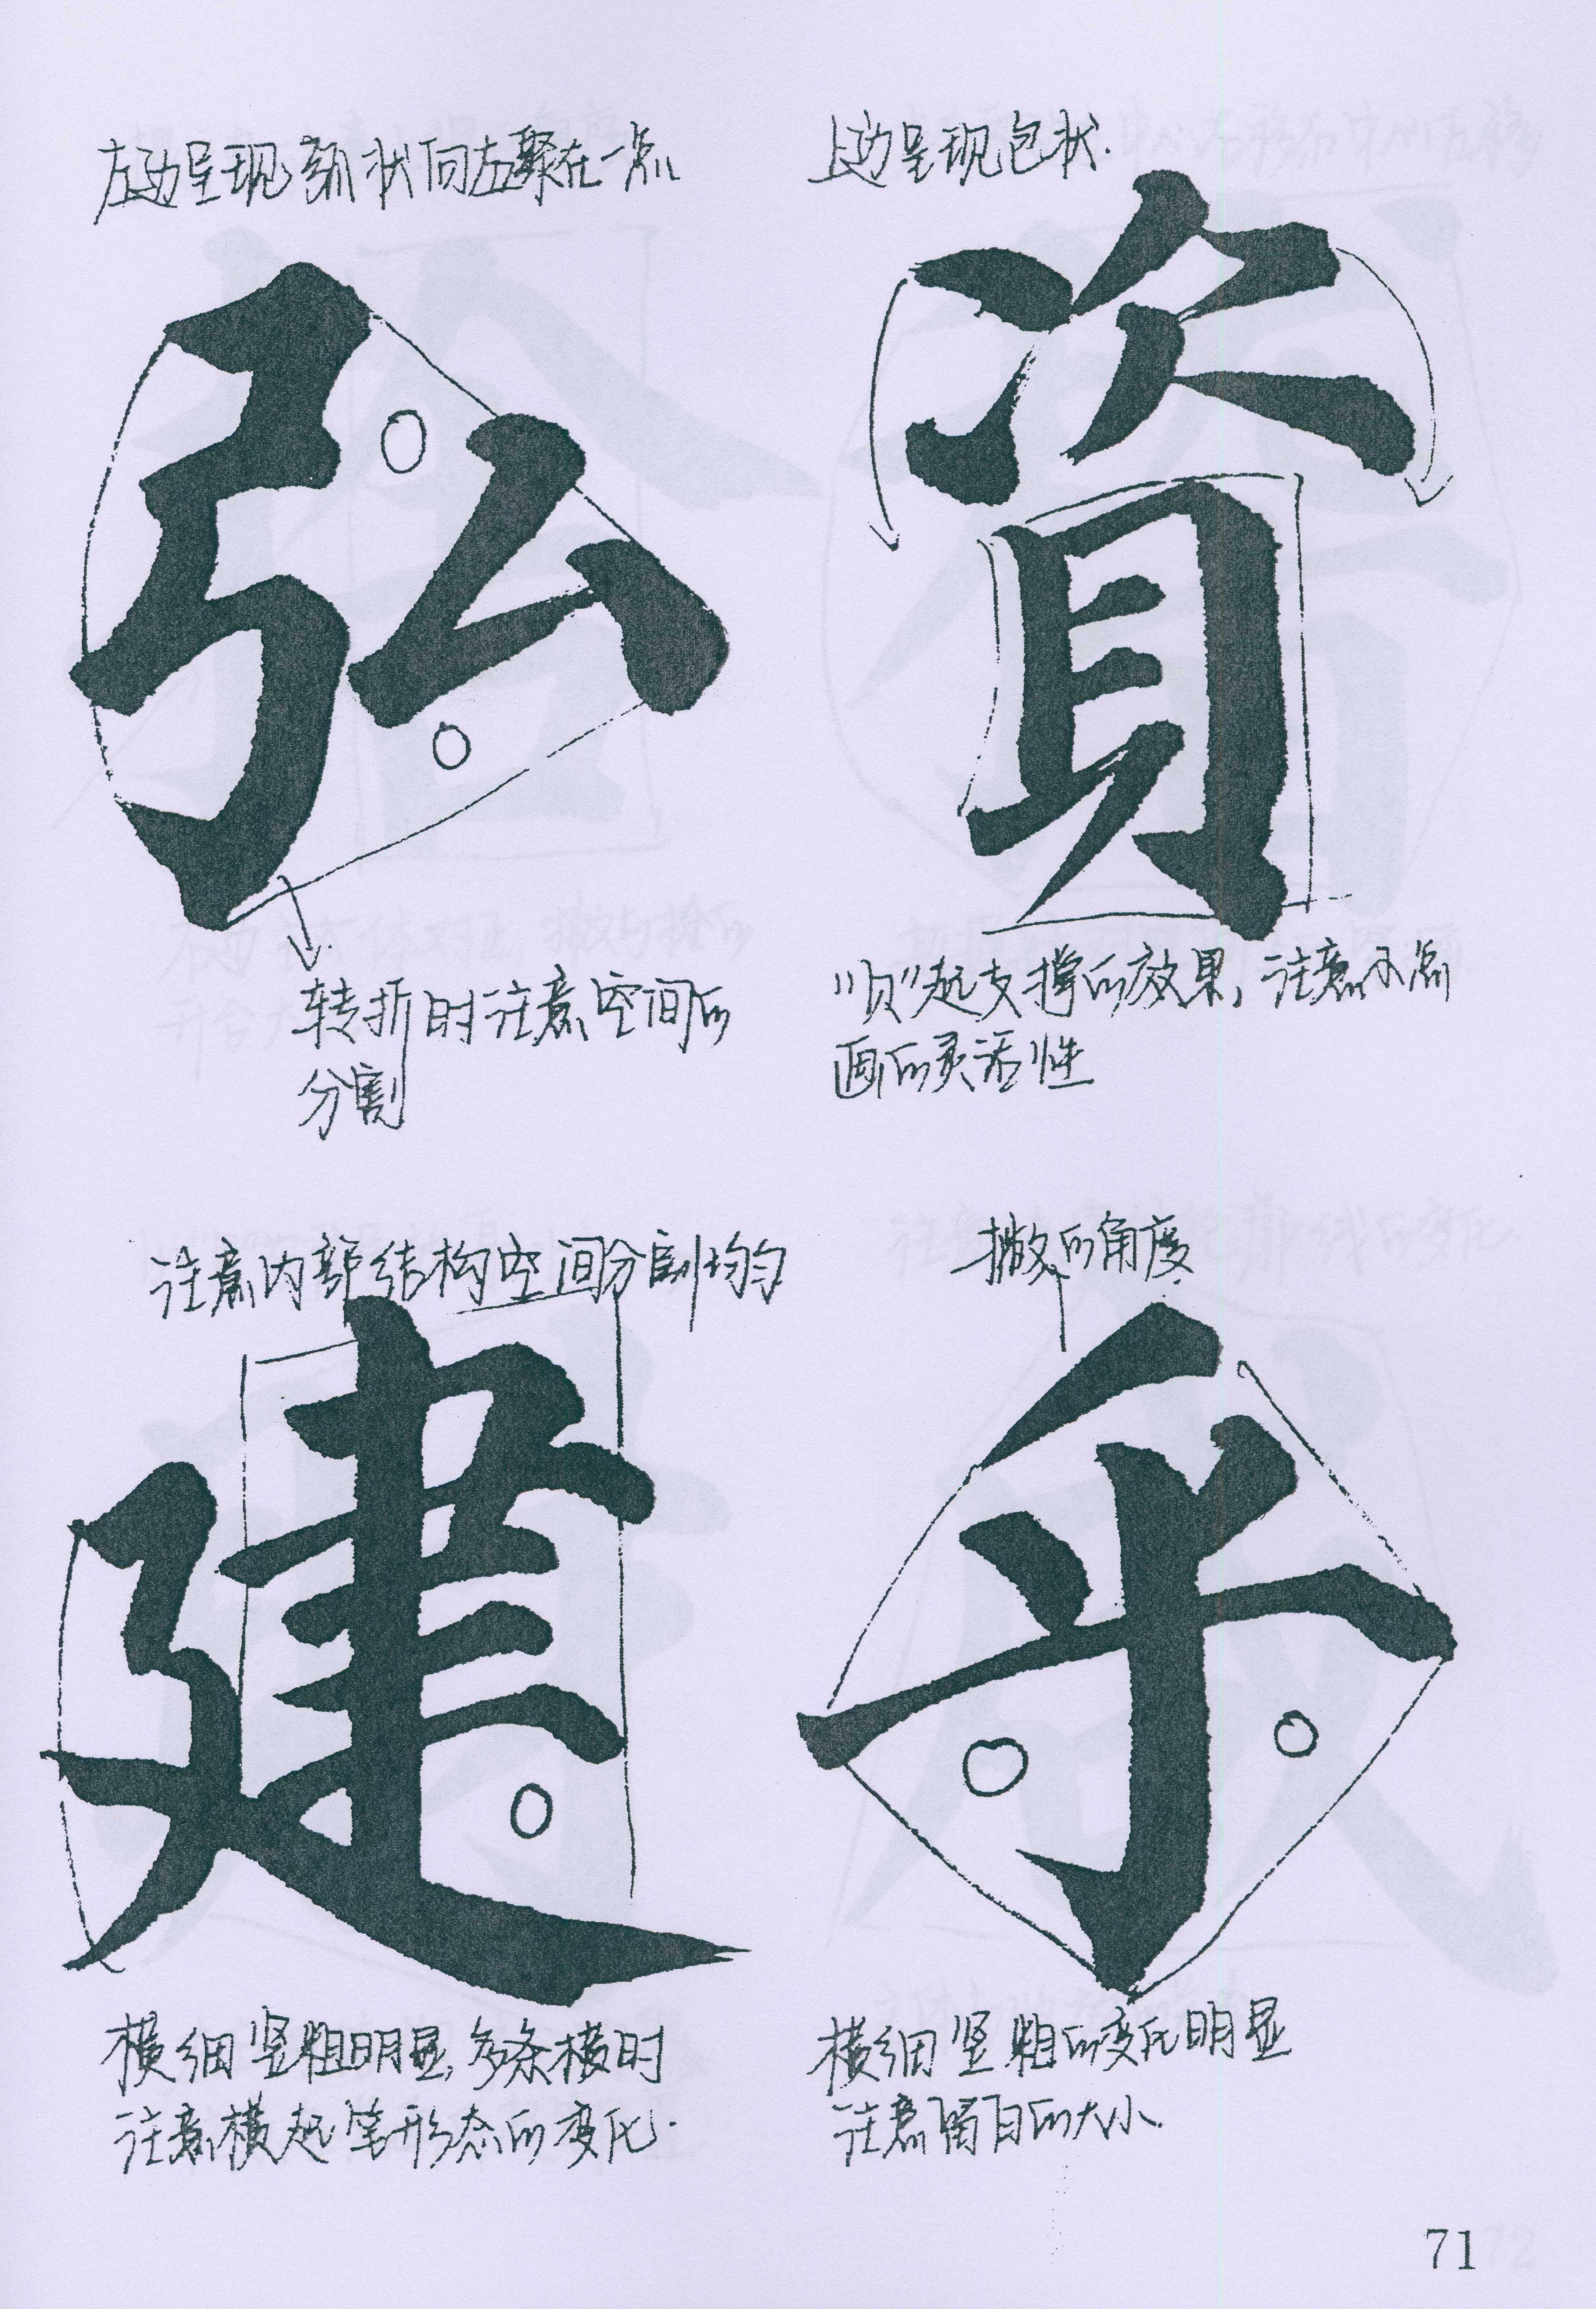 左边呈现弧状向右聚在一点
弘
转折时注意空间的
分割
上边呈现包状.
資
“贝”起支撑的效果,注意点
画的灵活性
注意内部结构空间分割均匀
建
横细竖粗明显,多条横时
注意横起笔形态的变化.
撇的角度
乎
横细竖粗的变化明显
注意留白的大小.
71